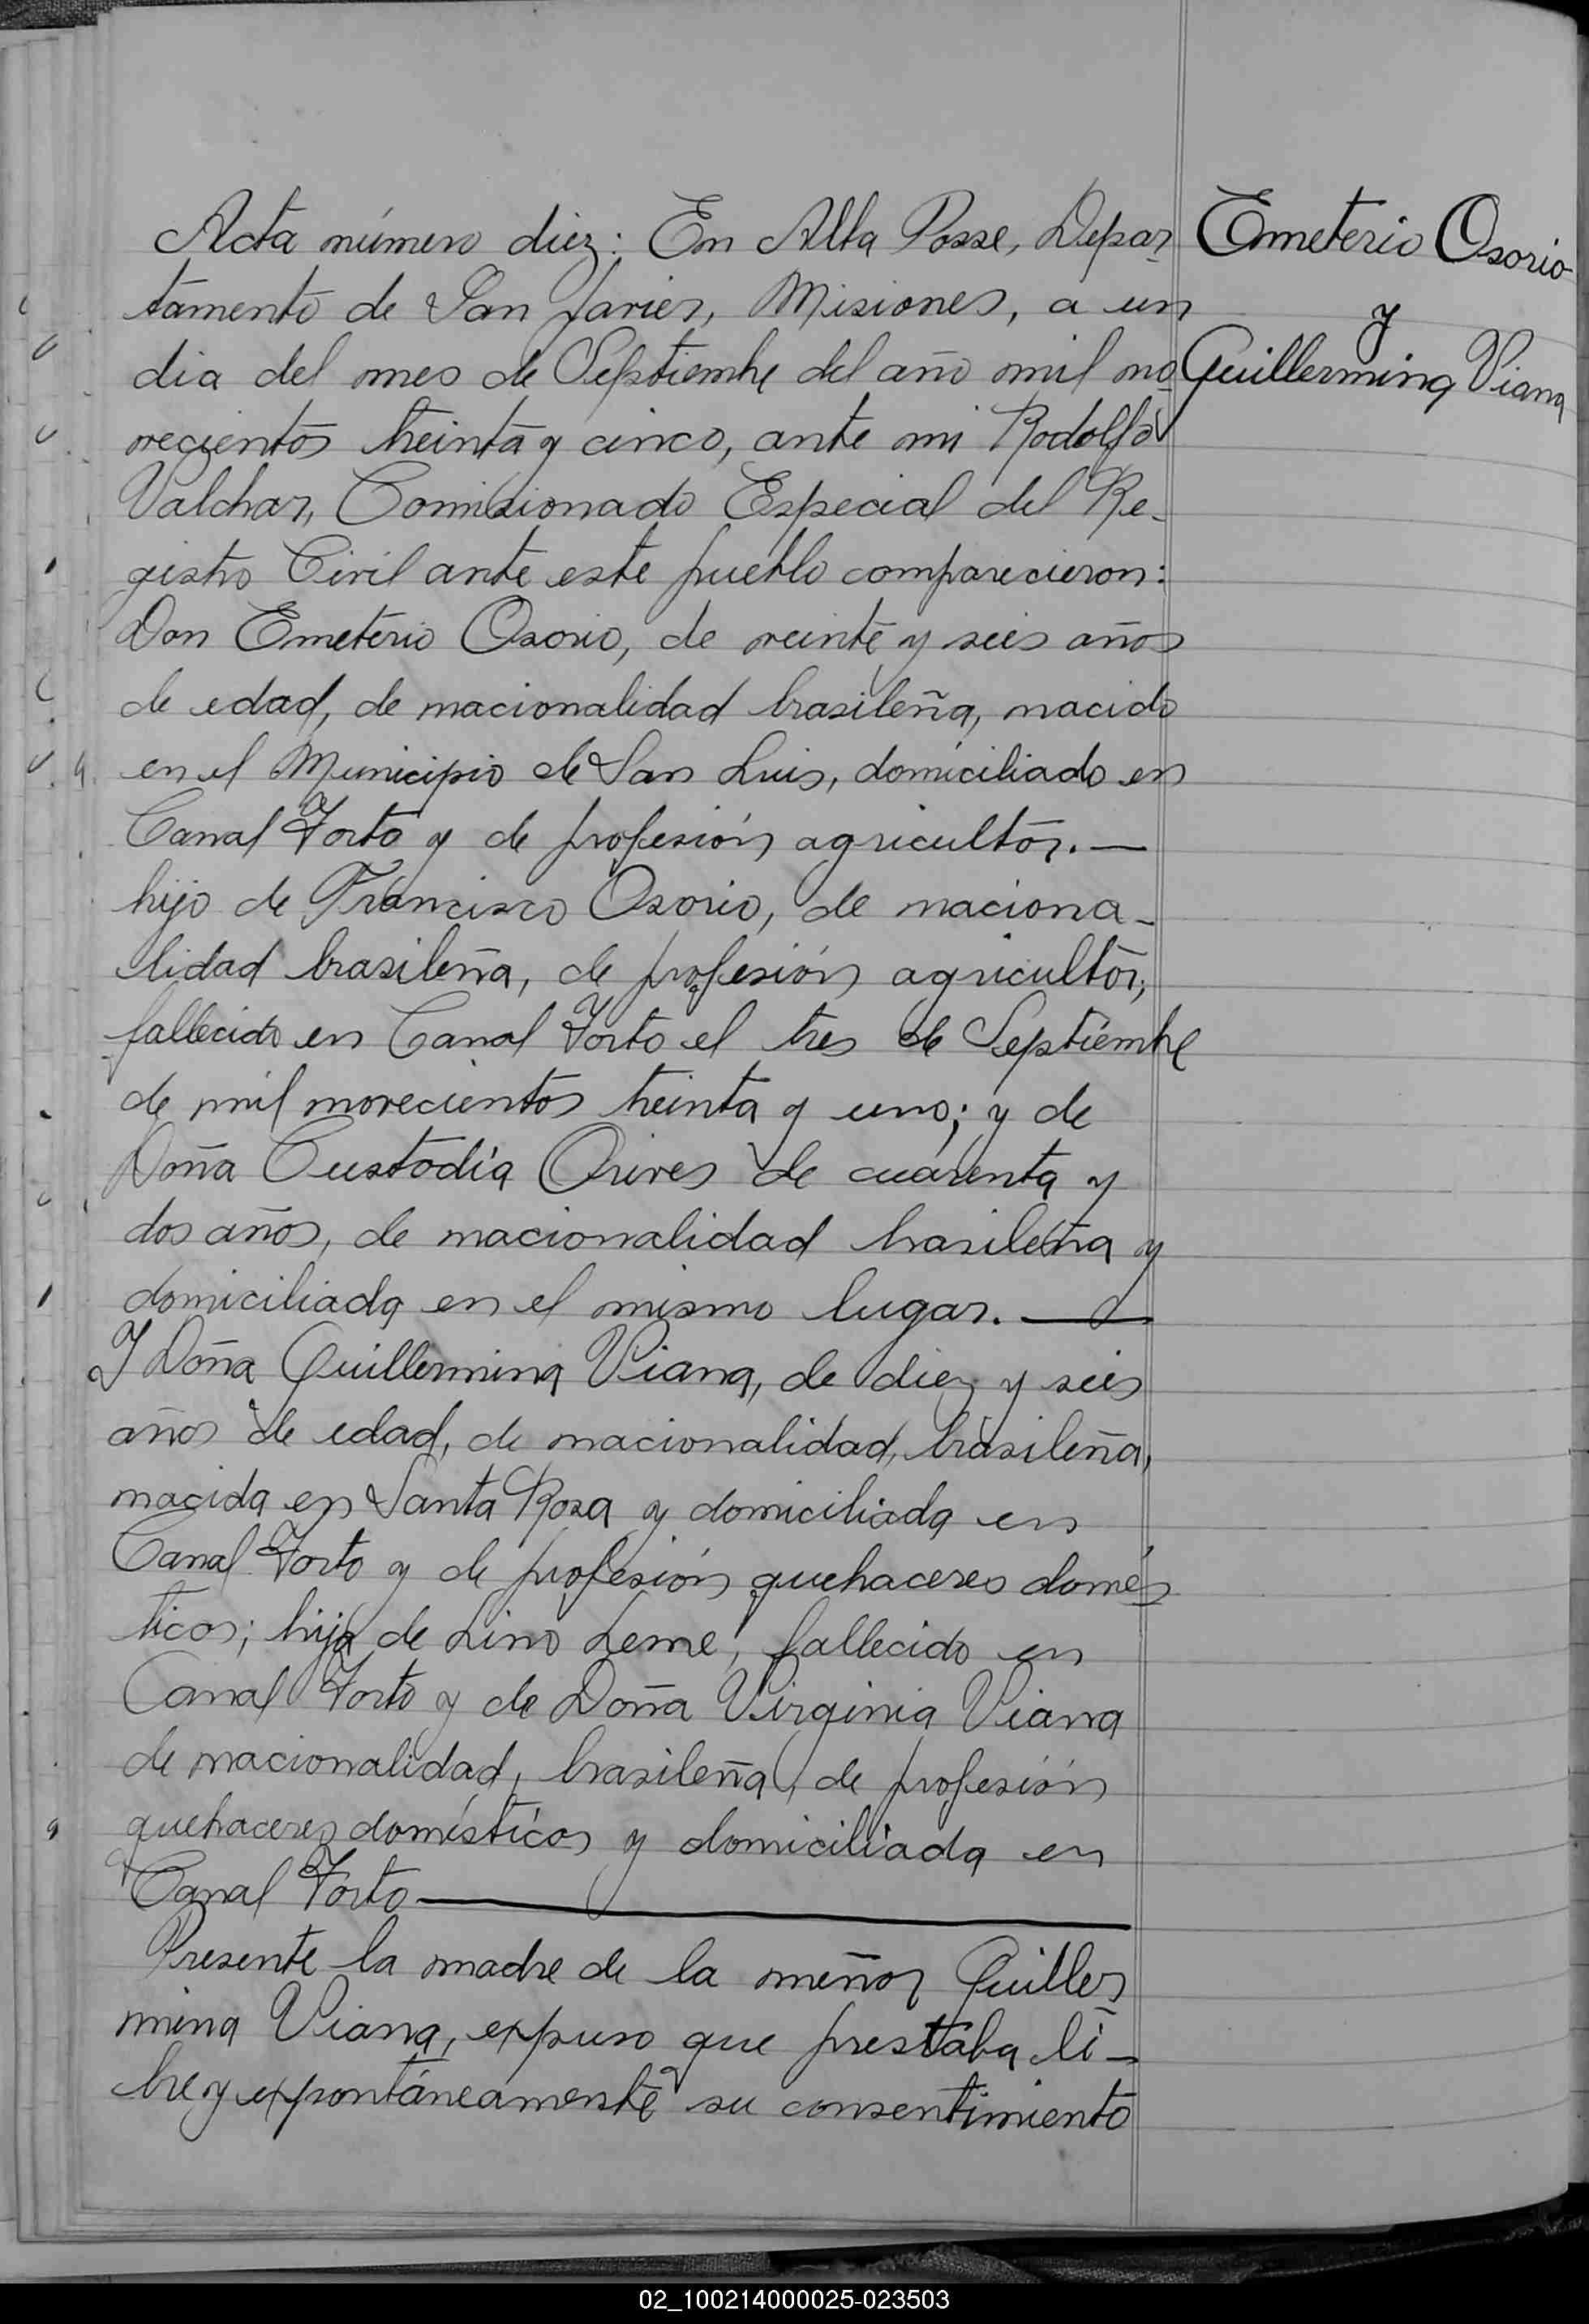 Emeterio Osorio
y
Guillermina Viana
Acta número diez: En Alba Posse, Depar
tamento de San Javier, Misiones, a un
dia del mes de Septiembre del año mil no
vecientos treinta y cinco, ante mi Rodolfo
Valchar, Comisionado Especial del Re-
gistro Civil ante este pueblo comparecieron:
Don Emeterio Osorio, de veinte y seis años
de edad, de nacionalidad brasileña, nacido
en el Municipio de San Luis, domiciliado en
Canal Torto y de profesión agricultor.—
hijo de Francisco Osorio, de naciona-
lidad brasileña, de profesión agricultor,
fallecido en Canal Torto el tres de Septiembre
de mil novecientos treinta y uno; y de
Doña Custodia Orives de cuarenta y
dos años, de nacionalidad brasileña y
domiciliada en el mismo lugar.—
Y Doña Guillermina Viana, de diez y seis
años de edad, de nacionalidad, brasileña,
nacida en Santa Rosa y domiciliada en
Canal Torto y de profesión quehaceres domés
ticos; hija de Lino Leme, fallecido en
Canal Torto y de Doña Virginia Viana
de nacionalidad, brasileña, de profesión
quehaceres domésticos y domiciliada en
Canal Torto—
Presente la madre de la menor Guiller
mina Viana, expuso que prestaba li-
bre y expontáneamente su consentimiento
02_100214000025-023503